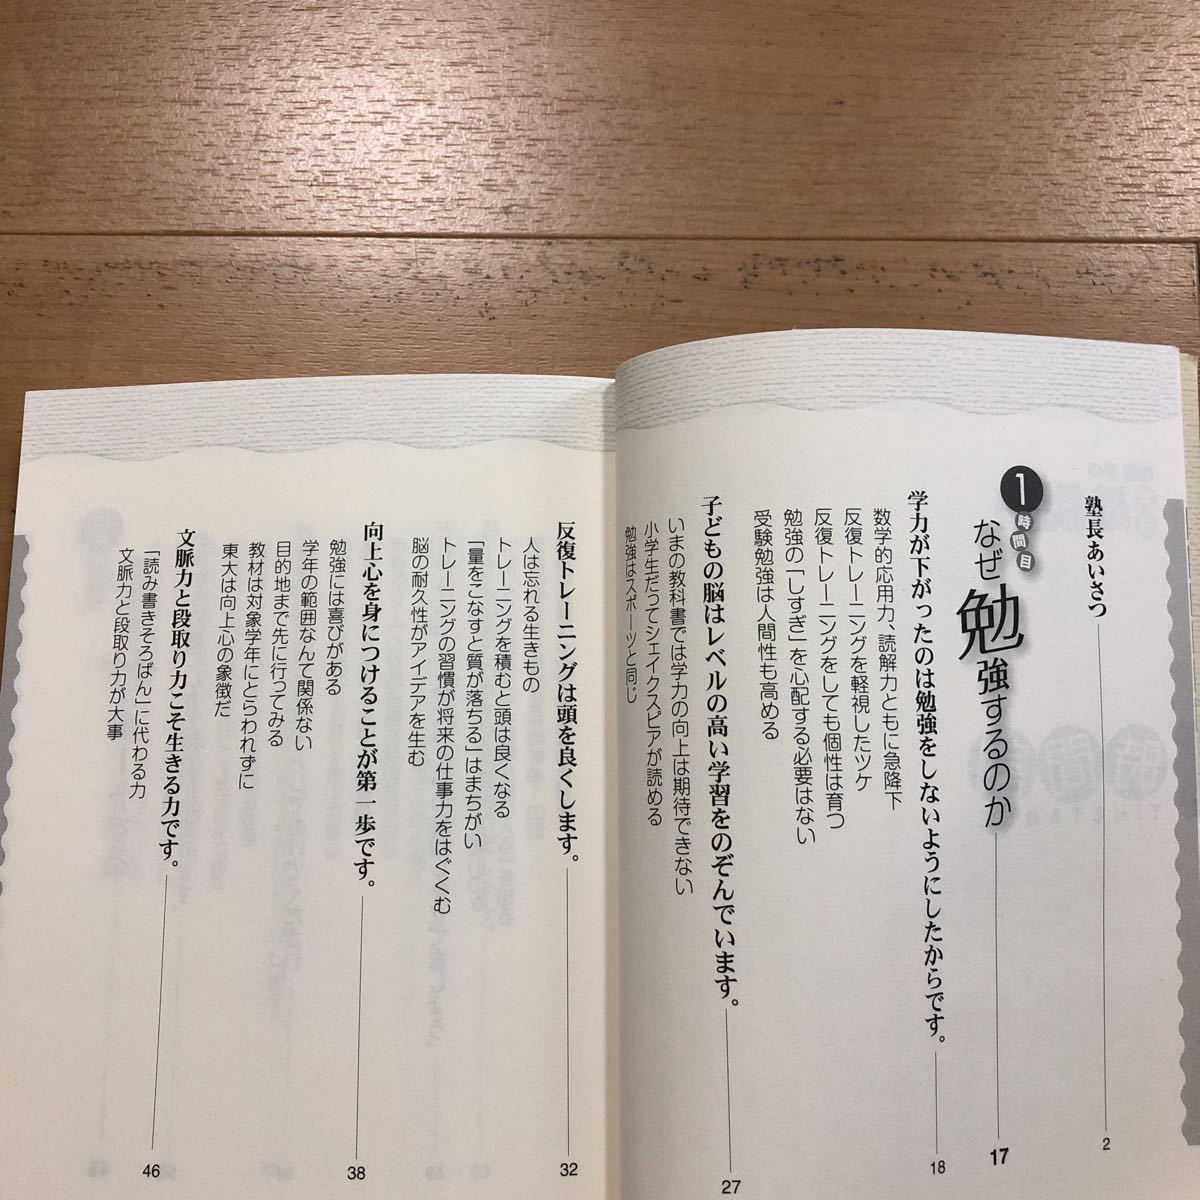 塾長あいさつ 2
1時間目
なぜ勉強するのか 17
学力が下がったのは勉強をしないようにしたからです。 18
数学的応用力、読解力ともに急降下
反復トレーニングを軽視したツケ
反復トレーニングをしても個性は育つ
勉強の「しすぎ」を心配する必要はない
受験勉強は人間性も高める
子どもの脳はレベルの高い学習をのぞんでいます。 27
いまの教科書では学力の向上は期待できない
小学生だってシェイクスピアが読める
勉強はスポーツと同じ
反復トレーニングは頭を良くします。 32
人は忘れる生きもの
トレーニングを積むと頭は良くなる
「量をこなすと質が落ちる」はまちがい
トレーニングの習慣が将来の仕事力をはぐくむ
脳の耐久性がアイデアを生む
向上心を身につけることが第一歩です。 38
勉強には喜びがある
学年の範囲なんて関係ない
目的地まで先に行ってみる
教材は対象学年にとらわれずに
東大は向上心の象徴だ
文脈力と段取り力こそ生きる力です。 46
「読み書きそろばん」に代わる力
文脈力と段取り力が大事